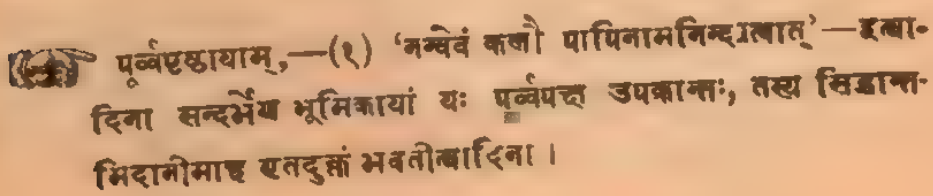 पूर्व्वपृष्ठायाम्,—(१) ‘नन्वेवं कलौ पापिनामनिन्द्यत्वात्’—इत्या-
दिना सन्दर्भेण भूमिकायां यः पूर्व्वपक्ष उपक्रान्तः, तस्य सिद्धान्त-
मिदानीमाह एतदुक्तं भवतीत्यादिना ।